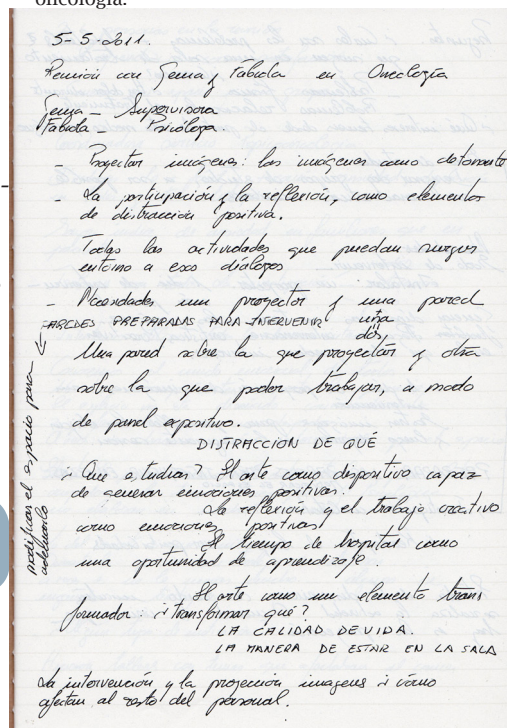 oncología.
5-5-2011.
Reunión con Gema y Fabiola en Oncología
Gema - Supervisora
Fabiola - Psicóloga.
- Proyectar imágenes: las imágenes como detonante
- La participación y la reflexión, como elementos
de distracción positiva.
Todas las actividades que puedan surgir
entorno a esos diálogos
- Necesidades un proyector y una pared
PAREDES PREPARADAS PARA INTERVENIR una
dos,
Una pared sobre la que proyectar y otra
sobre la que poder trabajar, a modo
de panel expositivo.
DISTRACCION DE QUÉ
¿Que estudias? El arte como dispositivo capaz
de generar emociones positivas.
La reflexión y el trabajo creativo
como emociones positivas!
El tiempo de hospital como
una oportunidad de aprendizaje.
El arte como un elemento trans
formador: ¿transformar qué?
LA CALIDAD DE VIDA.
LA MANERA DE ESTAR EN LA SALA
La intervención y la proyección imagens ¿cómo
afectan al resto del personal.
modifican el espacio para
adecuarlo